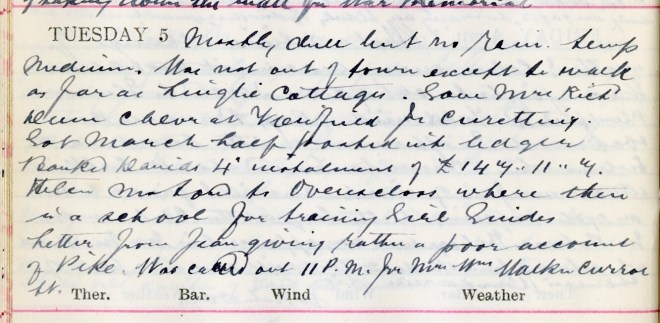 of taking down the wall for War Memorial
TUESDAY 5 Mostly dull but no rain. Temp
medium. Was not out of town except to walk
as far as Linglie Cottages. Gave Mrs Richd
chlor at Viewfield for curetting.
Got March half posted into ledger
Banked Davids 4th instalment of £147-11-7.
Helen motored to where there
is a school for training Girl Guides
Letter from Jean giving rather a poor account
of Pike. Was called out 11 P.M. for Mrs Wm Curror
St. Ther. Bar. Wind Weather